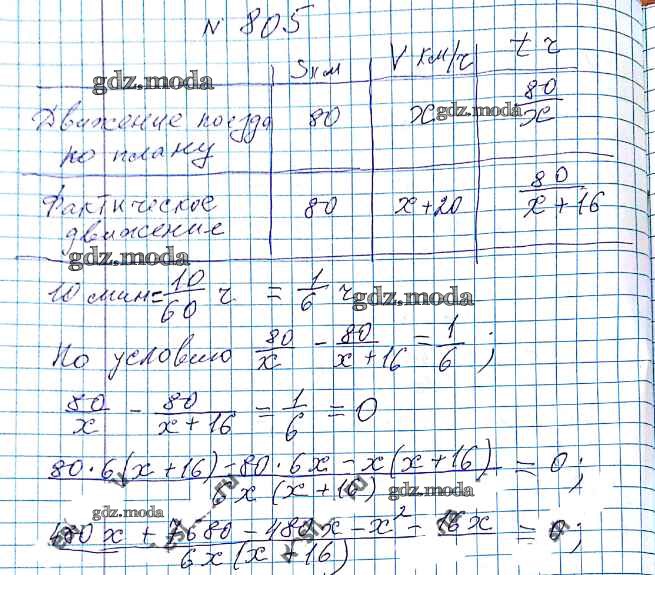 N 805
S км V км/ч t ч
gdz.moda
Движение поезда по плану 80 x gdz.moda 80/x
Фактическое движение 80 x+20 80/(x+16)
gdz.moda
10 мин = 10/60 ч = 1/6 ч
gdz.moda
По условию 80/x - 80/(x+16) = 1/6 ;
80/x - 80/(x+16) = 1/6 = 0
(80·6(x+16) - 80·6x - x(x+16))/(6x(x+16)) = 0;
gdz.moda
(480x + 7680 - 480x - x² - 16x)/(6x(x+16)) = 0;